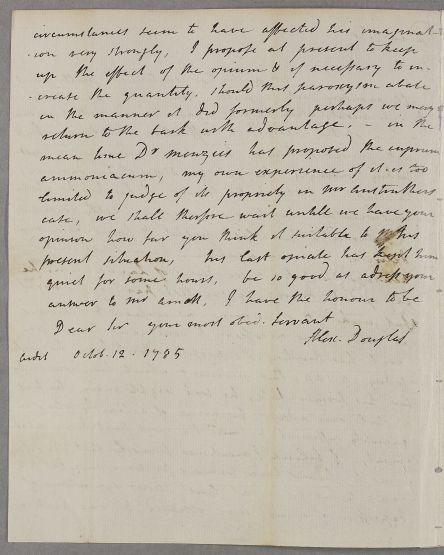 circumstances seem to have affected his imaginat-
-ion very strongly, I propose at present to keep
up the effect of the opium & if necessary to in-
-crease the quantity. Should this paroxysm abate
in the manner it did formerly perhaps we may
return to the bark with advantage. - in the
mean time Dr Menzies has proposed the cuprum
ammoniacum, my own experience of it is too
limited to judge of its propriety in Mr
case, we shall therfore wait untill we have your
opinion how far you think it suitable to his
present situation, his last opiate has kept him
quiet for some hours, be so good as adress your
answer to Mr I have the honour to be
Dear Sir your most obed. servant
Alex. Douglas
Octob. 12. 1785